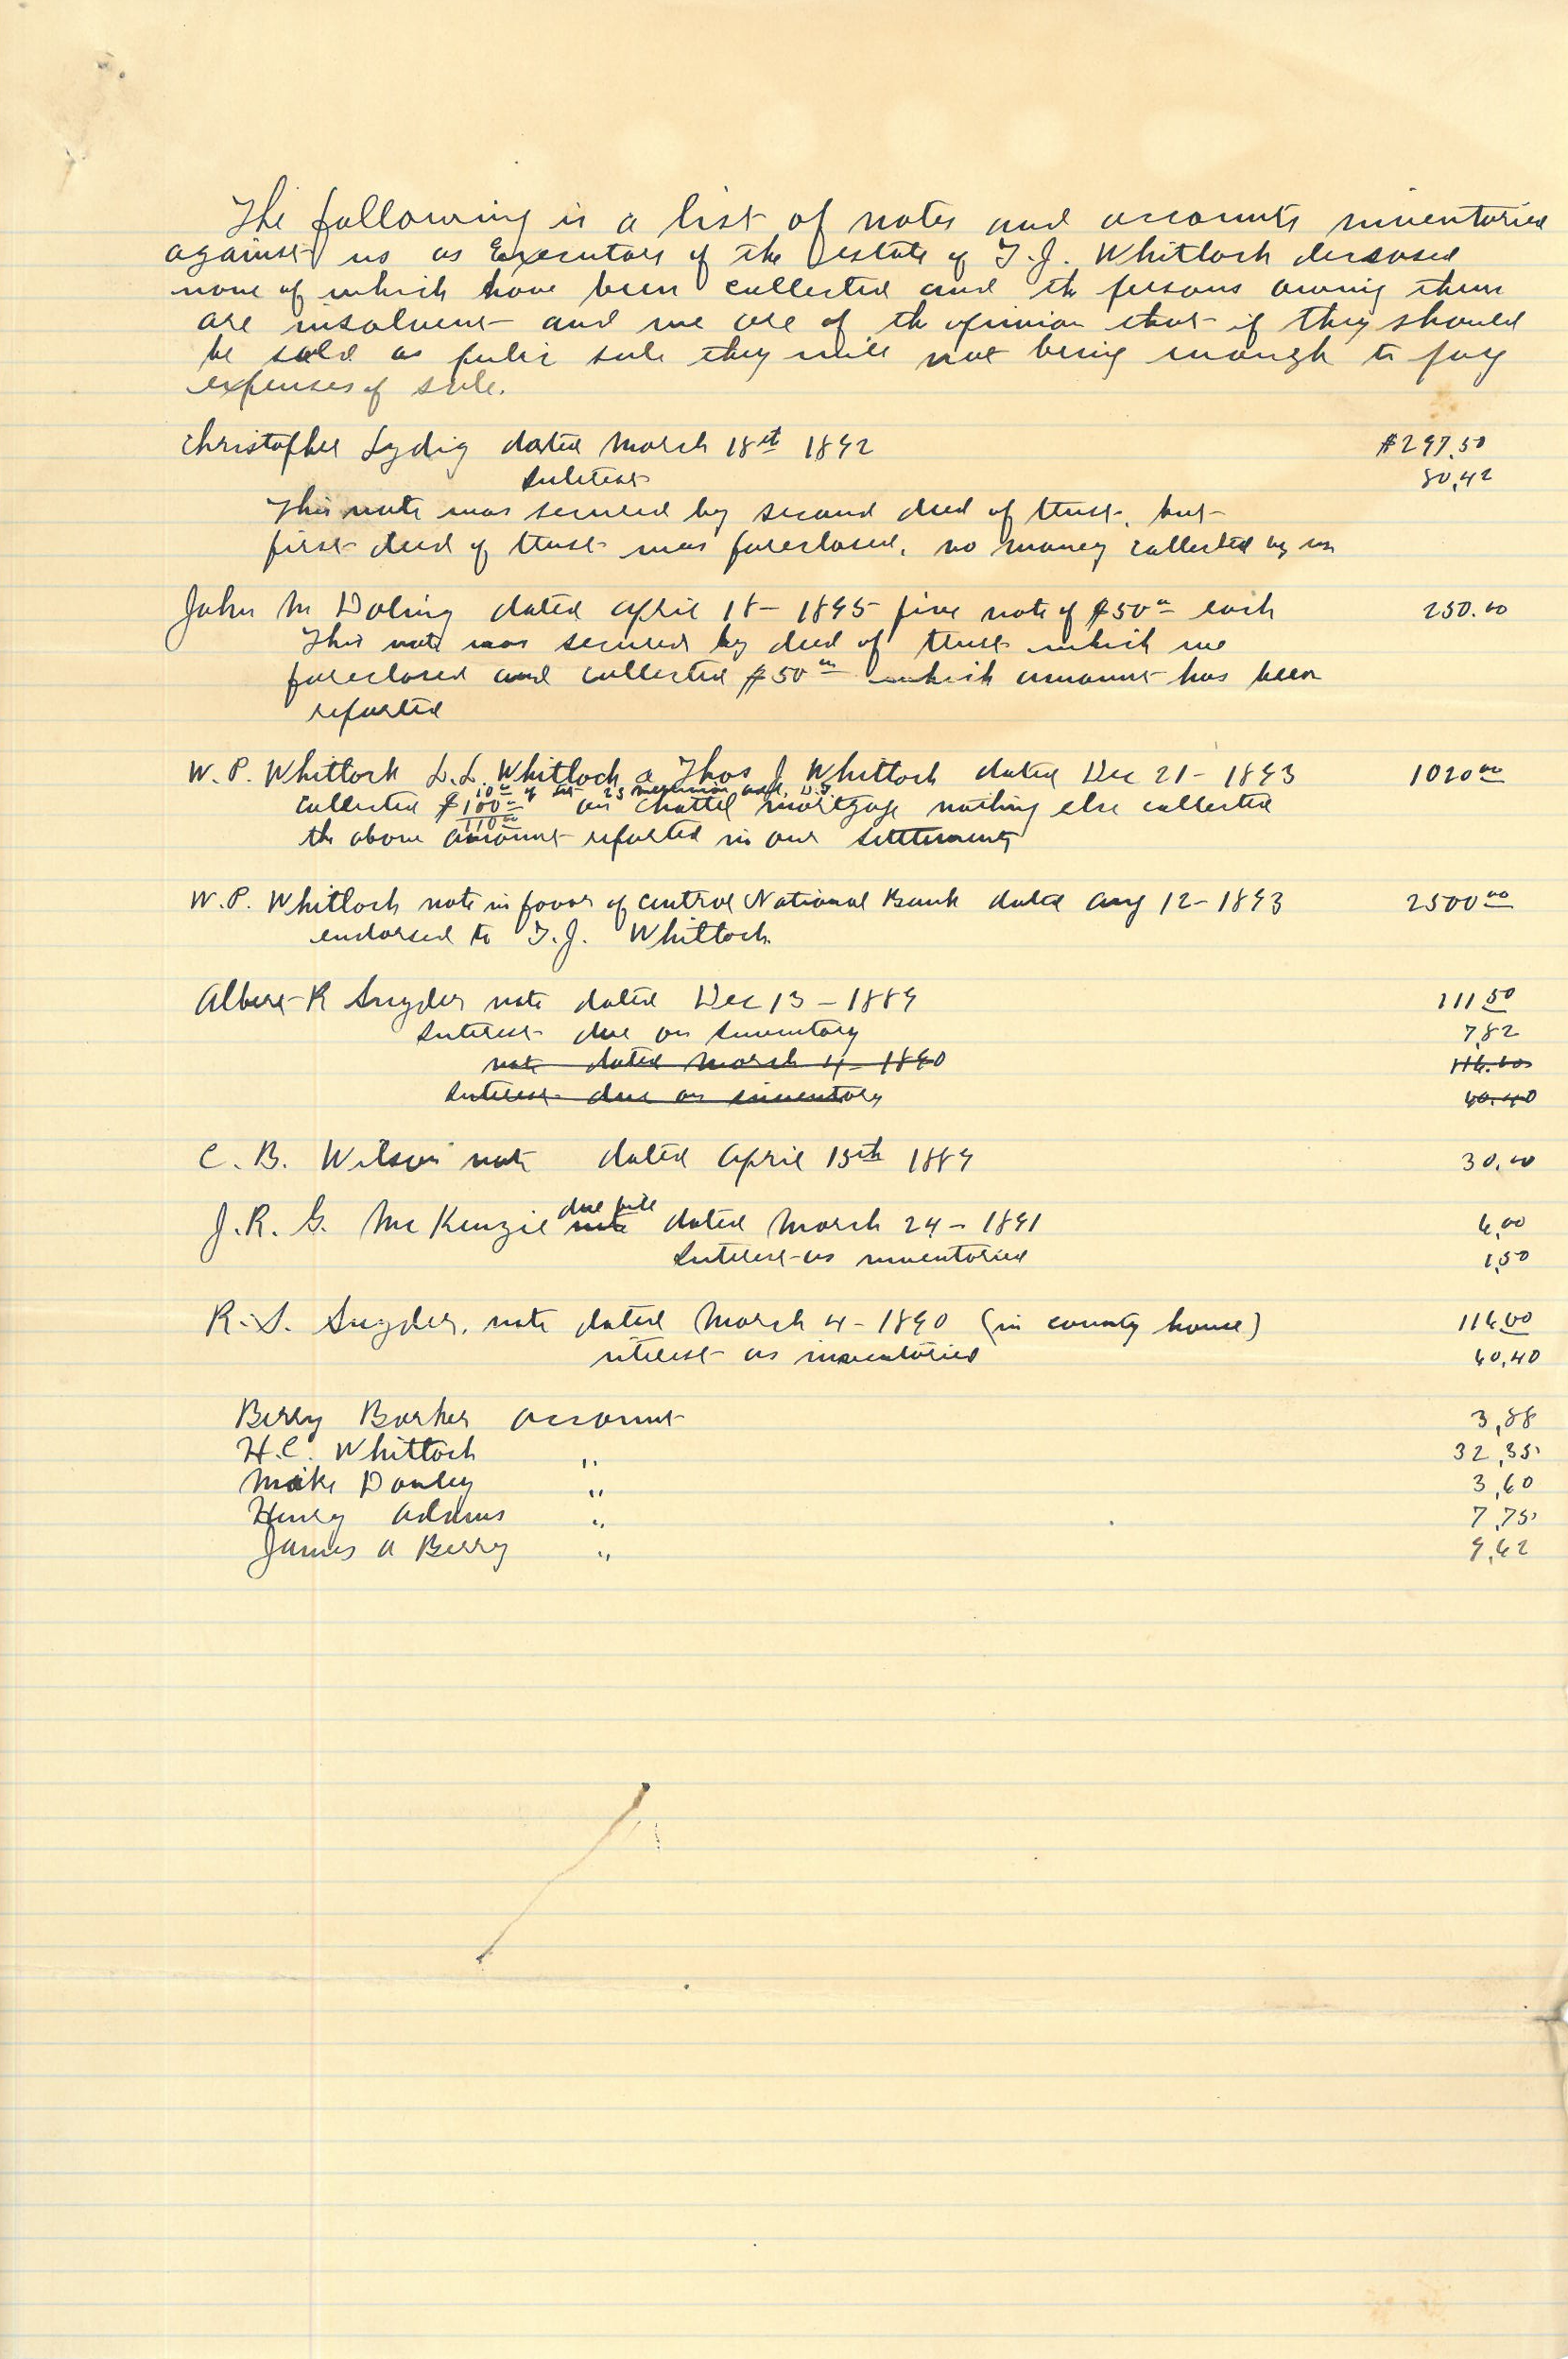 The following is a list of notes and accounts inventoried
against us as Executors of the estate of T.J. Whitlock deceased
none of which have been collected and the persons owing them
are insolvent and we are of the opinion that if they should
be sold as public sale they will not bring enough to pay
expenses of sale.
Christopher Lydig dated March 18st 1892 $297.50
Interest 80,42
This note was secured by second deed of trust, but
first deed of trust was foreclosed, no money collected by us
John M Doling dated April 18 - 1895 five note of $50 00 each 250.00
This note was secured by deed of trust which we
foreclosed and collected $50 00 which amount has been
reported
W. P. Whitlock L. L. Whitlock & Thos J Whitlock dated Dec 21 - 1893 1020 00
10 00 of
collected $100 00 on chattel mortgage nothing else collected
110 00
the above amount reported in our settlements
W. P. Whitlock note in favor of central National Bank dated Aug 12 - 1893 2500 00
endorsed to T. J. Whitlock
Albert R Snyder note dated Dec 13 - 1889 111 50
Interest due on Inventory 7,82
note dated March 4 - 1890 116.00
Interest due on inventory 60.40
C. B. Wilson note dated April 15th 1889 30.00
due bill
J. R. G. McKenzie note dated March 24 - 1891 6,00
Interest as inventoried 1,50
R. S. Snyder, note dated March 4 - 1890 (in county house) 116 00
interest as inventoried 60,40
Berry Barker account 3,88
H. C. Whitlock " 32,35
Mike Donley " 3,60
Henry Adams " 7,75
James A Berry " 9,62